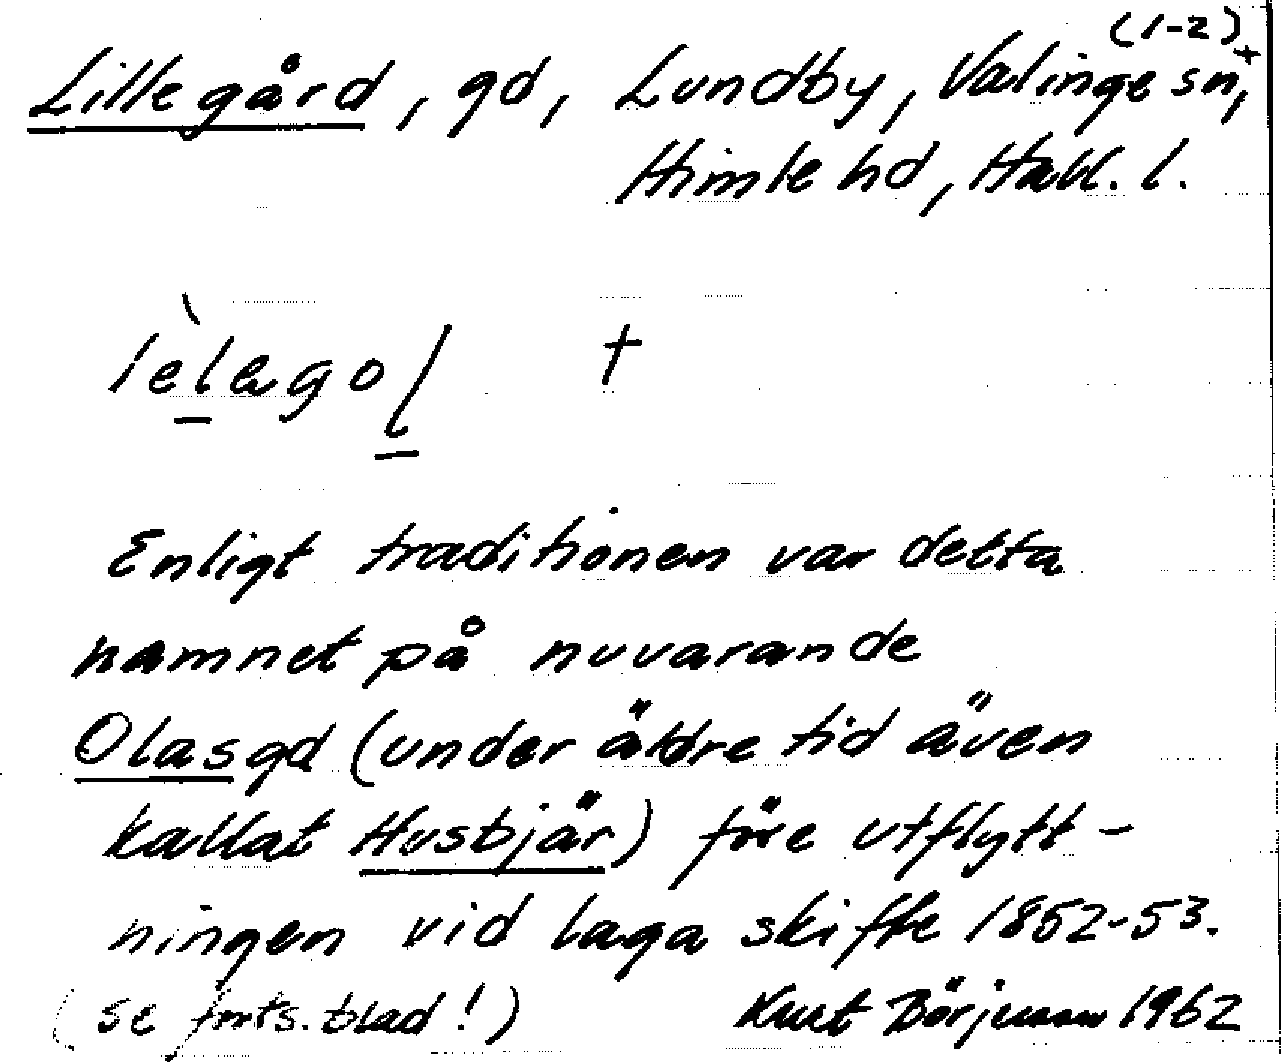 (1-2)
Lillegård, gd, Lundby, Valinge sn,+
Himle hd, Hall. l.
lèlego †
Enligt traditionen var detta
namnet på nuvarande
Olasgd (under äldre tid även
kallat Husbjär) före utflytt-
ningen vid laga skifte 1852-53.
(se forts. blad!) Kurt Börjesson 1962